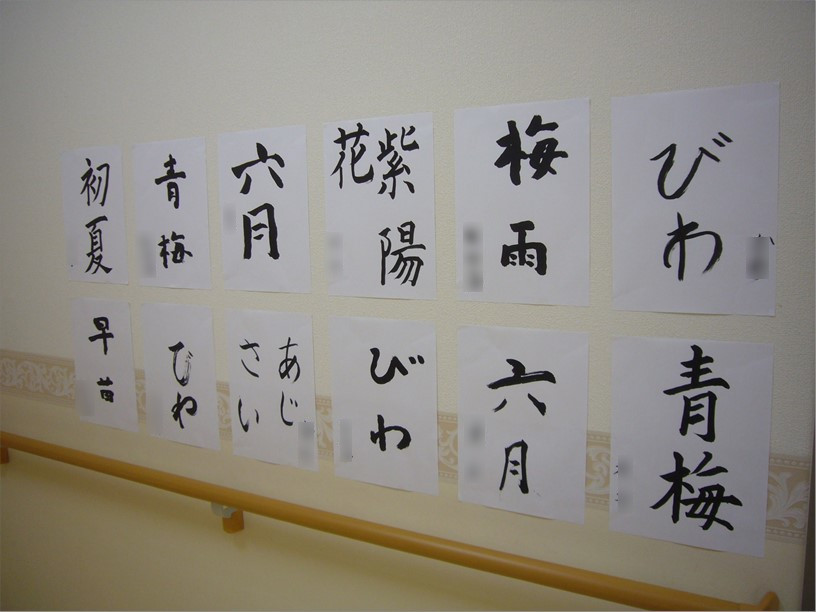 初夏
青梅
六月
紫陽
花
梅雨
びわ
早苗
びわ
あじ
さい
びわ
六月
青梅